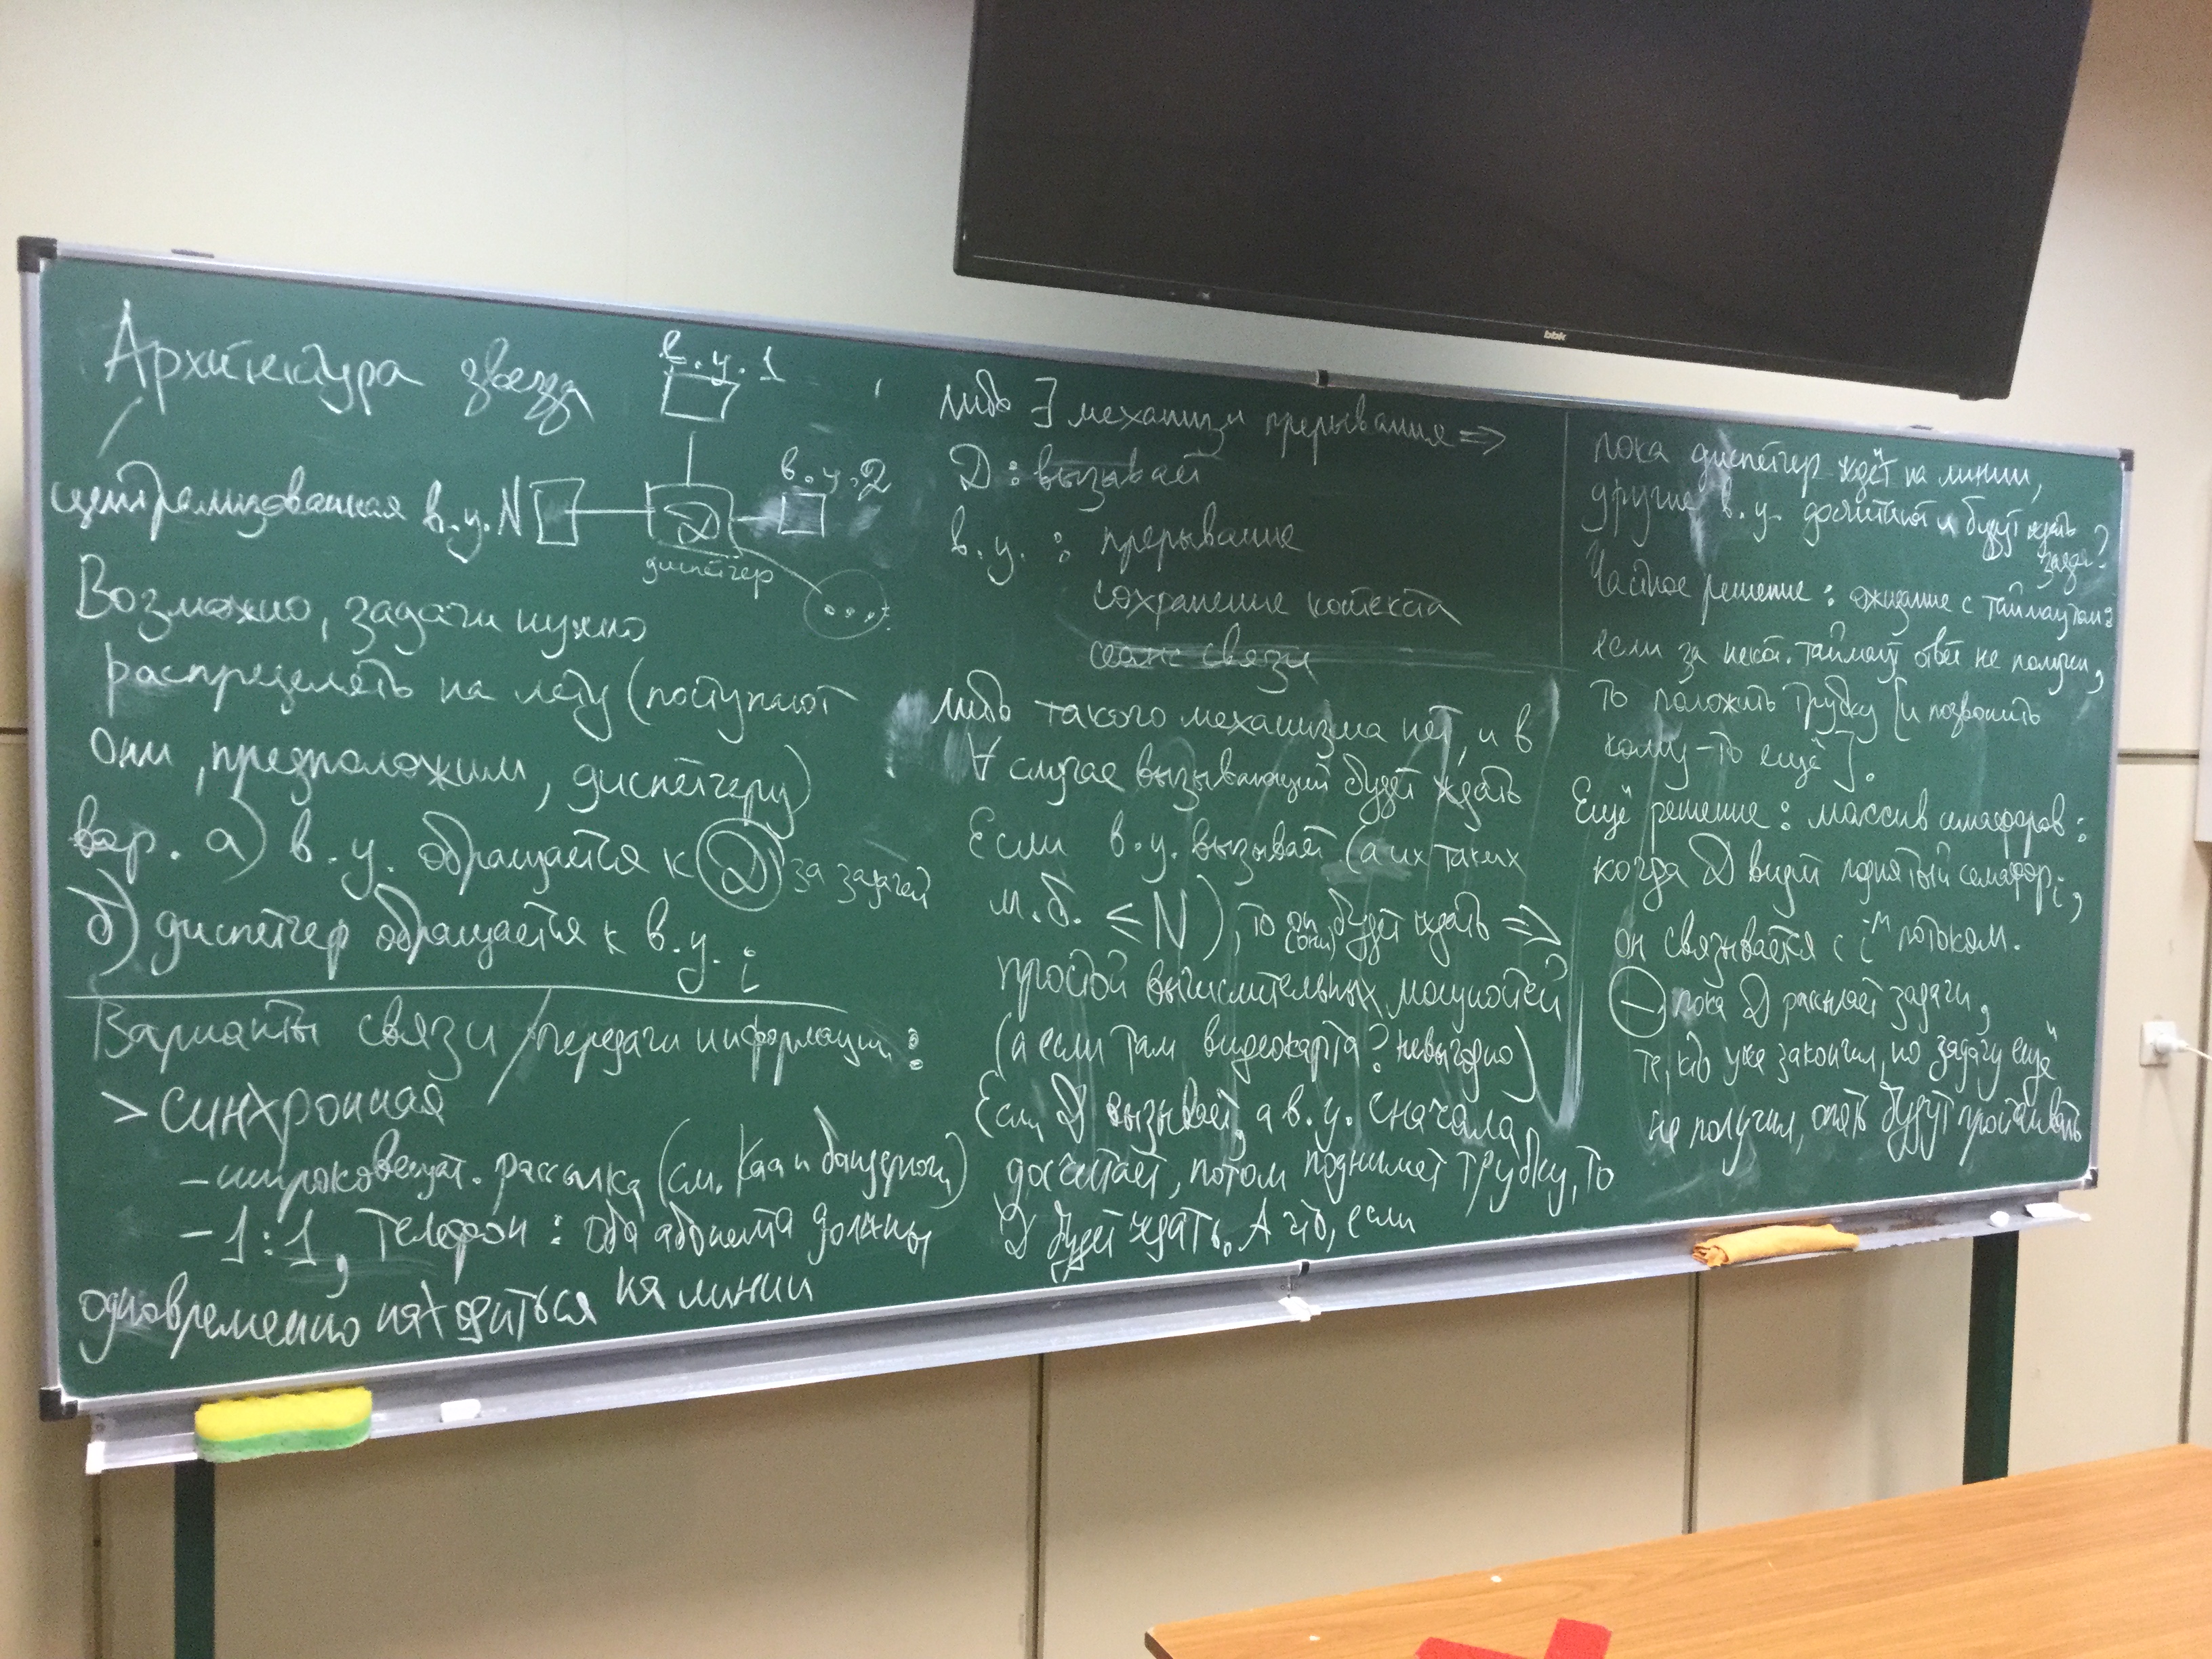 Архитектура звезда
централизованная
в.у.1
в.у.N
Д
в.у.2
диспетчер
Возможно, задачи нужно
распределять на лету (поступают
они, предположим, диспетчеру)
вар. а) в.у. обращается к Д за задачей
б) диспетчер обращается к в.у.i
Варианты связи / передачи информации:
> синхронная
- широковещат. рассылка (см. Каа и бандерлоги)
- 1:1, телефон: оба абонента должны
одновременно находиться на линии
либо ∃ механизм прерывания ⇒
Д: вызывает
в.у.: прерывание
сохранение контекста
сеанс связи
либо такого механизма нет, и в
∀ случае вызывающий будет ждать
Если в.у. вызывает (а их таких
м.б. ≤ N), то он (они) будет ждать ⇒
простой вычислительных мощностей
(а если там видеокарта? невыгодно)
Если Д вызывает, а в.у. сначала
досчитает, потом поднимет трубку, то
Д будет ждать. А что, если
пока диспетчер ждёт на линии,
другие в.у. досчитают и будут ждать
задач?
Частное решение: ожидание с таймаутом:
если за некот. таймаут ответ не получен,
то положить трубку [и позвонить
кому-то ещё].
Ещё решение: массив семафоров:
когда Д видит поднятый семафор i,
он связывается с i-м потоком.
⊖ пока Д рассылает задачи,
те, кто уже закончил, но задачу ещё
не получил, опять будут простаивать
bbk